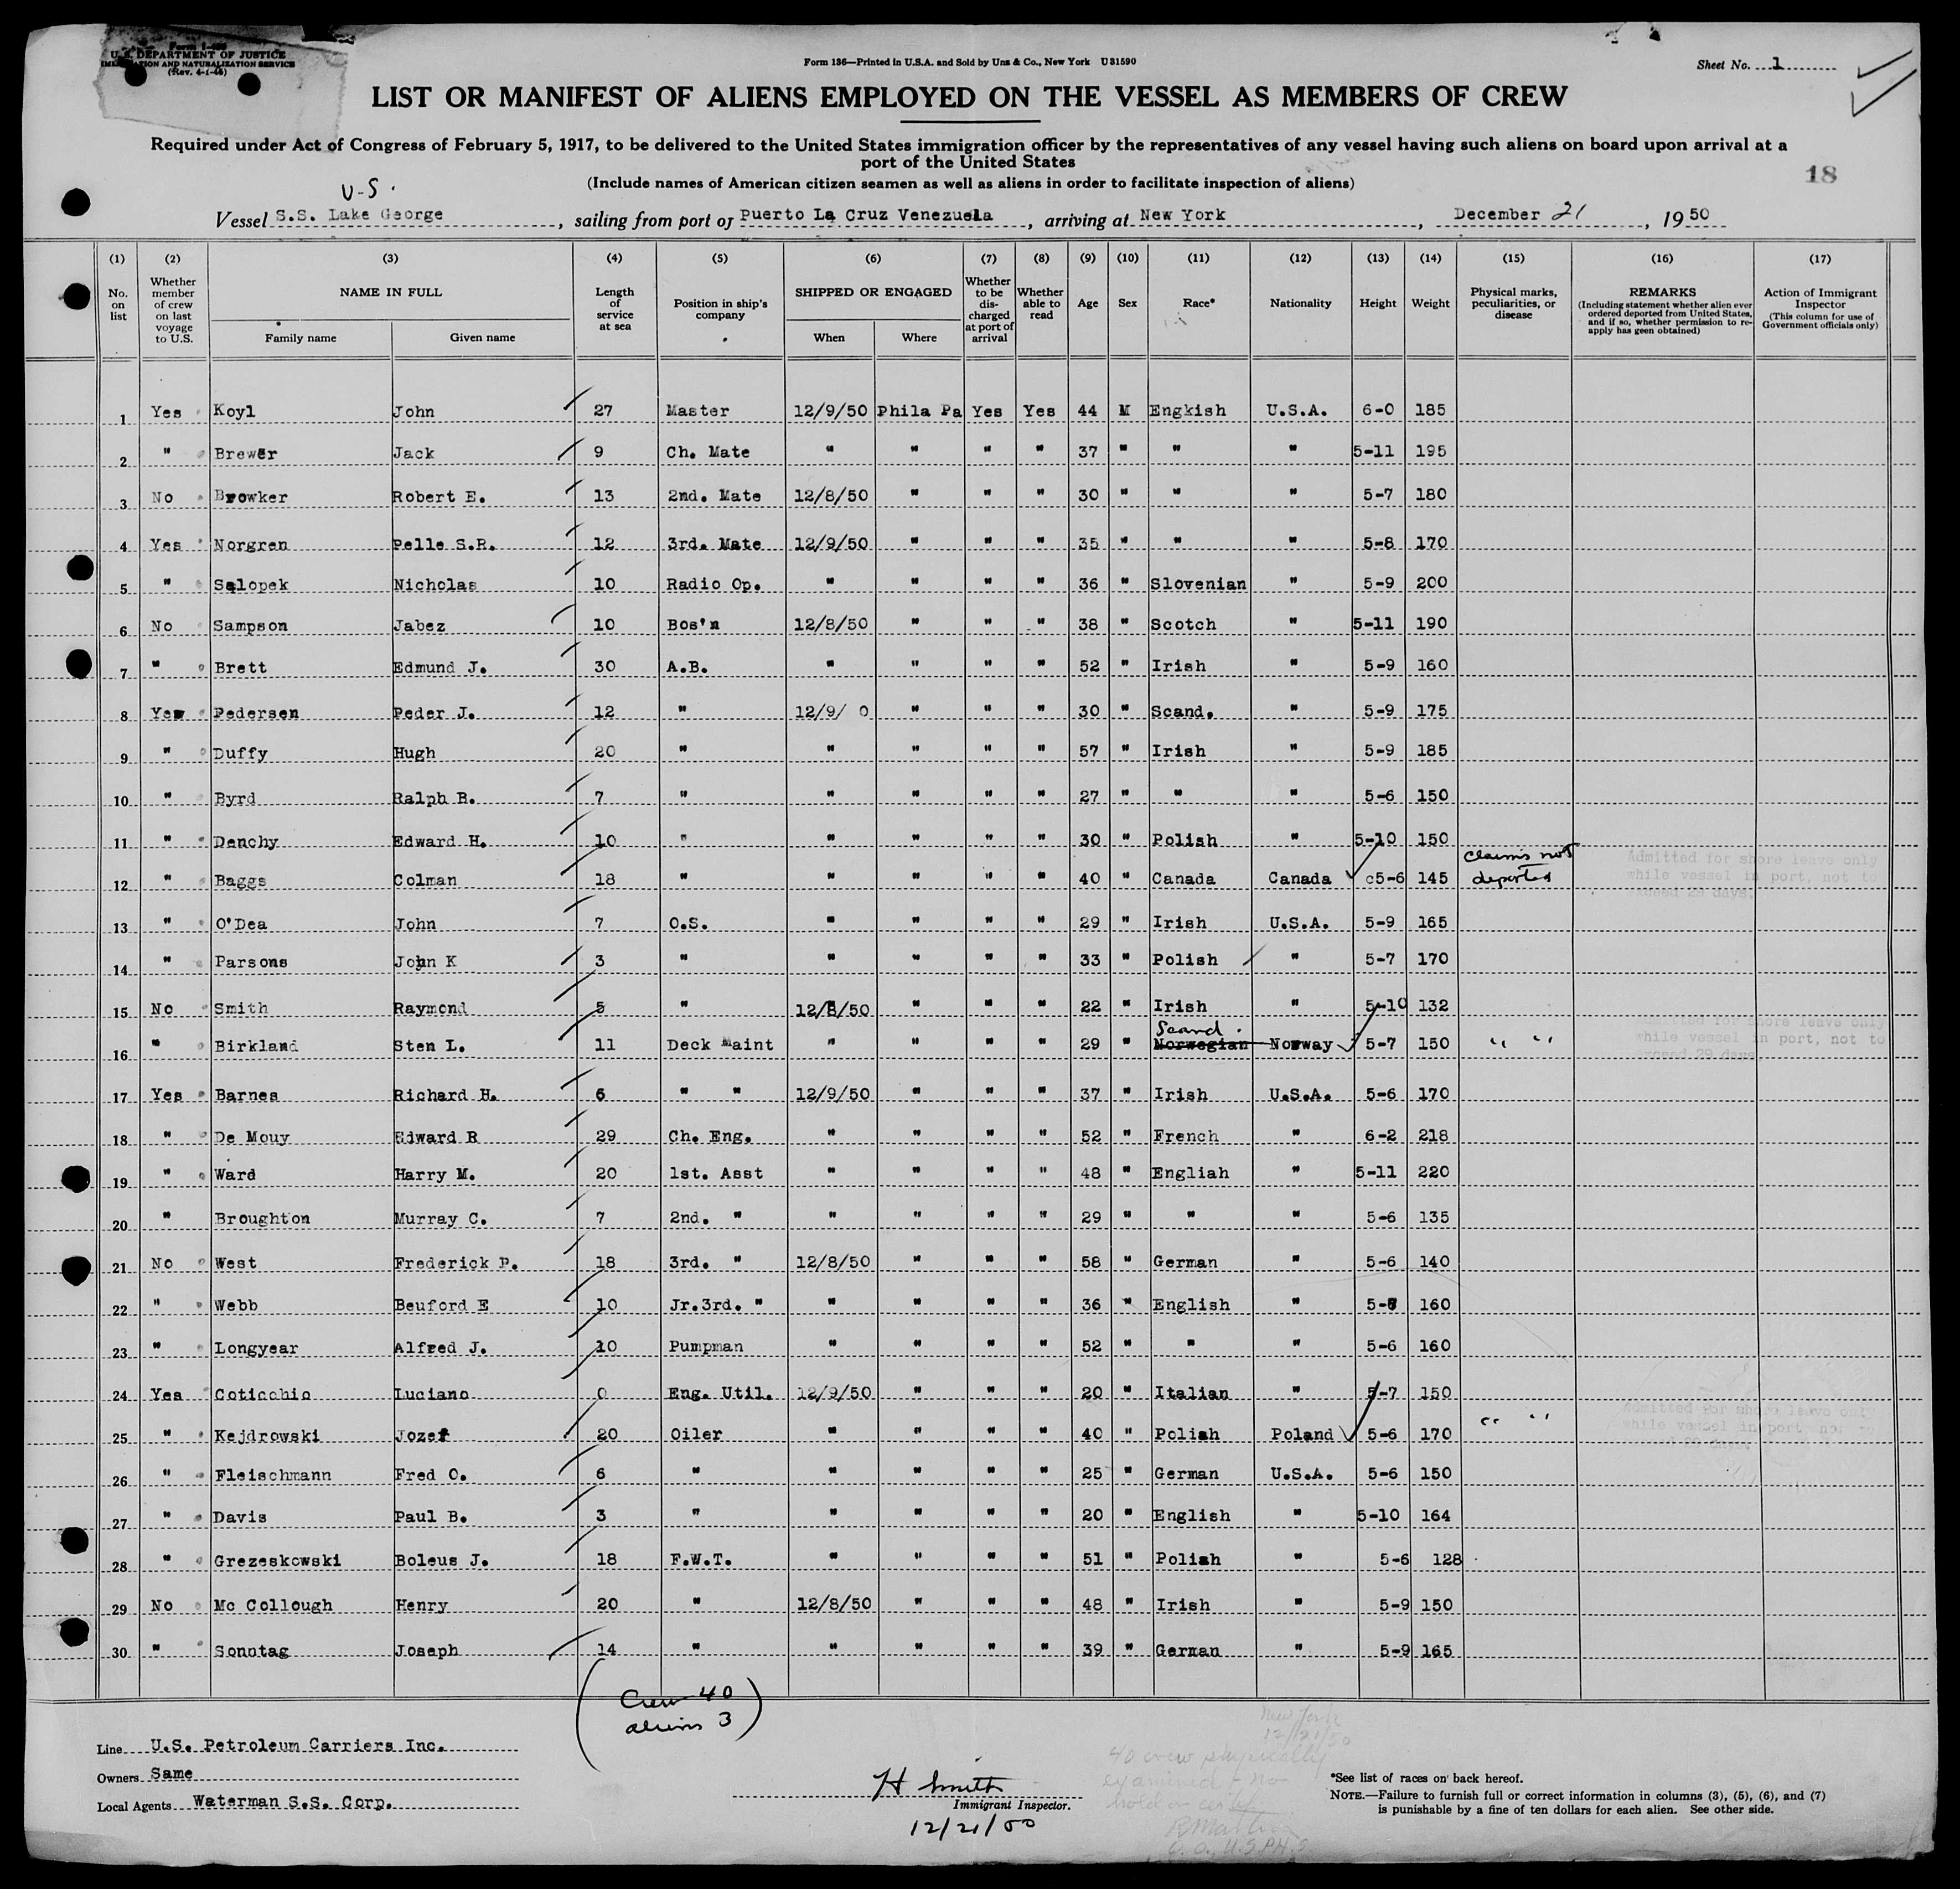 Form I-489
U.S. DEPARTMENT OF JUSTICE
IMMIGRATION AND NATURALIZATION SERVICE
(Rev. 4-1-45)
Form 136—Printed in U.S.A. and Sold by Unz & Co., New York U 31590
Sheet No. 1
LIST OR MANIFEST OF ALIENS EMPLOYED ON THE VESSEL AS MEMBERS OF CREW
Required under Act of Congress of February 5, 1917, to be delivered to the United States immigration officer by the representatives of any vessel having such aliens on board upon arrival at a
port of the United States
(Include names of American citizen seamen as well as aliens in order to facilitate inspection of aliens)
18
U.S.
Vessel S.S. Lake George, sailing from port of Puerto La Cruz Venezuela, arriving at New York, December 21, 1950
(1) (2) (3) (4) (5) (6) (7) (8) (9) (10) (11) (12) (13) (14) (15) (16) (17)
No. on list
Whether member of crew on last voyage to U.S.
NAME IN FULL
Family name
Given name
Length of service at sea
Position in ship's company
SHIPPED OR ENGAGED
When
Where
Whether to be discharged at port of arrival
Whether able to read
Age
Sex
Race*
Nationality
Height
Weight
Physical marks, peculiarities, or disease
REMARKS
(Including statement whether alien ever ordered deported from United States, and if so, whether permission to re-apply has geen obtained)
Action of Immigrant Inspector
(This column for use of Government officials only)
1 Yes Koyl John 27 Master 12/9/50 Phila Pa Yes Yes 44 M Engkish U.S.A. 6-0 185
2 " Brewer Jack 9 Ch. Mate " " " " 37 " " " 5-11 195
3 No Browker Robert E. 13 2nd. Mate 12/8/50 " " " 30 " " " 5-7 180
4 Yes Norgren Pelle S.R. 12 3rd. Mate 12/9/50 " " " 35 " " " 5-8 170
5 " Salopek Nicholas 10 Radio Op. " " " " 36 " Slovenian " 5-9 200
6 No Sampson Jabez 10 Bos'n 12/8/50 " " " 38 " Scotch " 5-11 190
7 " Brett Edmund J. 30 A.B. " " " " 52 " Irish " 5-9 160
8 Yes Pedersen Peder J. 12 " 12/9/ 0 " " " 30 " Scand. " 5-9 175
9 " Duffy Hugh 20 " " " " " 57 " Irish " 5-9 185
10 " Byrd Ralph B. 7 " " " " " 27 " " " 5-6 150
11 " Denchy Edward H. 10 " " " " " 30 " Polish " 5-10 150
12 " Baggs Colman 18 " " " " " 40 " Canada Canada c5-6 145 claims not deported Admitted for shore leave only while vessel in port, not to exceed 29 days.
13 " O'Dea John 7 O.S. " " " " 29 " Irish U.S.A. 5-9 165
14 " Parsons John K 3 " " " " " 33 " Polish " 5-7 170
15 No Smith Raymond 5 " 12/8/50 " " " 22 " Irish " 5-10 132
Scand.
16 " Birkland Sten L. 11 Deck Maint " " " " 29 " Norwegian Norway 5-7 150 " " Admitted for shore leave only while vessel in port, not to exceed 29 days
17 Yes Barnes Richard H. 6 " " 12/9/50 " " " 37 " Irish U.S.A. 5-6 170
18 " De Mouy Edward R 29 Ch. Eng. " " " " 52 " French " 6-2 218
19 " Ward Harry M. 20 1st. Asst " " " " 48 " Engliah " 5-11 220
20 " Broughton Murray C. 7 2nd. " " " " " 29 " " " 5-6 135
21 No West Frederick P. 18 3rd. " 12/8/50 " " " 58 " German " 5-6 140
22 " Webb Beuford E 10 Jr.3rd. " " " " " 36 " English " 5-6 160
23 " Longyear Alfred J. 10 Pumpman " " " " 52 " " " 5-6 160
24 Yes Coticchio Luciano 0 Eng. Util. 12/9/50 " " " 20 " Italian " 5-7 150
25 " Kejdrowski Jozef 20 Oiler " " " " 40 " Polish Poland 5-6 170 " " Admitted for shore leave only while vessel in port, not to
26 " Fleischmann Fred O. 6 " " " " " 25 " German U.S.A. 5-6 150
27 " Davis Paul B. 3 " " " " " 20 " English " 5-10 164
28 " Grezeskowski Boleus J. 18 F.W.T. " " " " 51 " Polish " 5-6 128
29 No Mc Collough Henry 20 " 12/8/50 " " " 48 " Irish " 5-9 150
30 " Sonntag Joseph 14 " " " " " 39 " German " 5-9 165
Crew 40
aliens 3
Line U.S. Petroleum Carriers Inc.
Owners Same
Local Agents Waterman S.S. Corp.
H Smith
Immigrant Inspector.
12/21/50
New York
12/21/50
40 crew physically
examined - no
hold or cert.
U.S.P.H.S.
*See list of races on back hereof.
NOTE.—Failure to furnish full or correct information in columns (3), (5), (6), and (7)
is punishable by a fine of ten dollars for each alien. See other side.